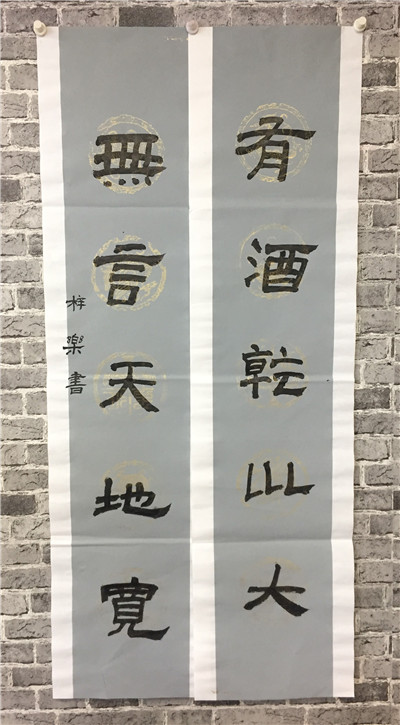 有酒乾山大
無言天地寬
梓樂書